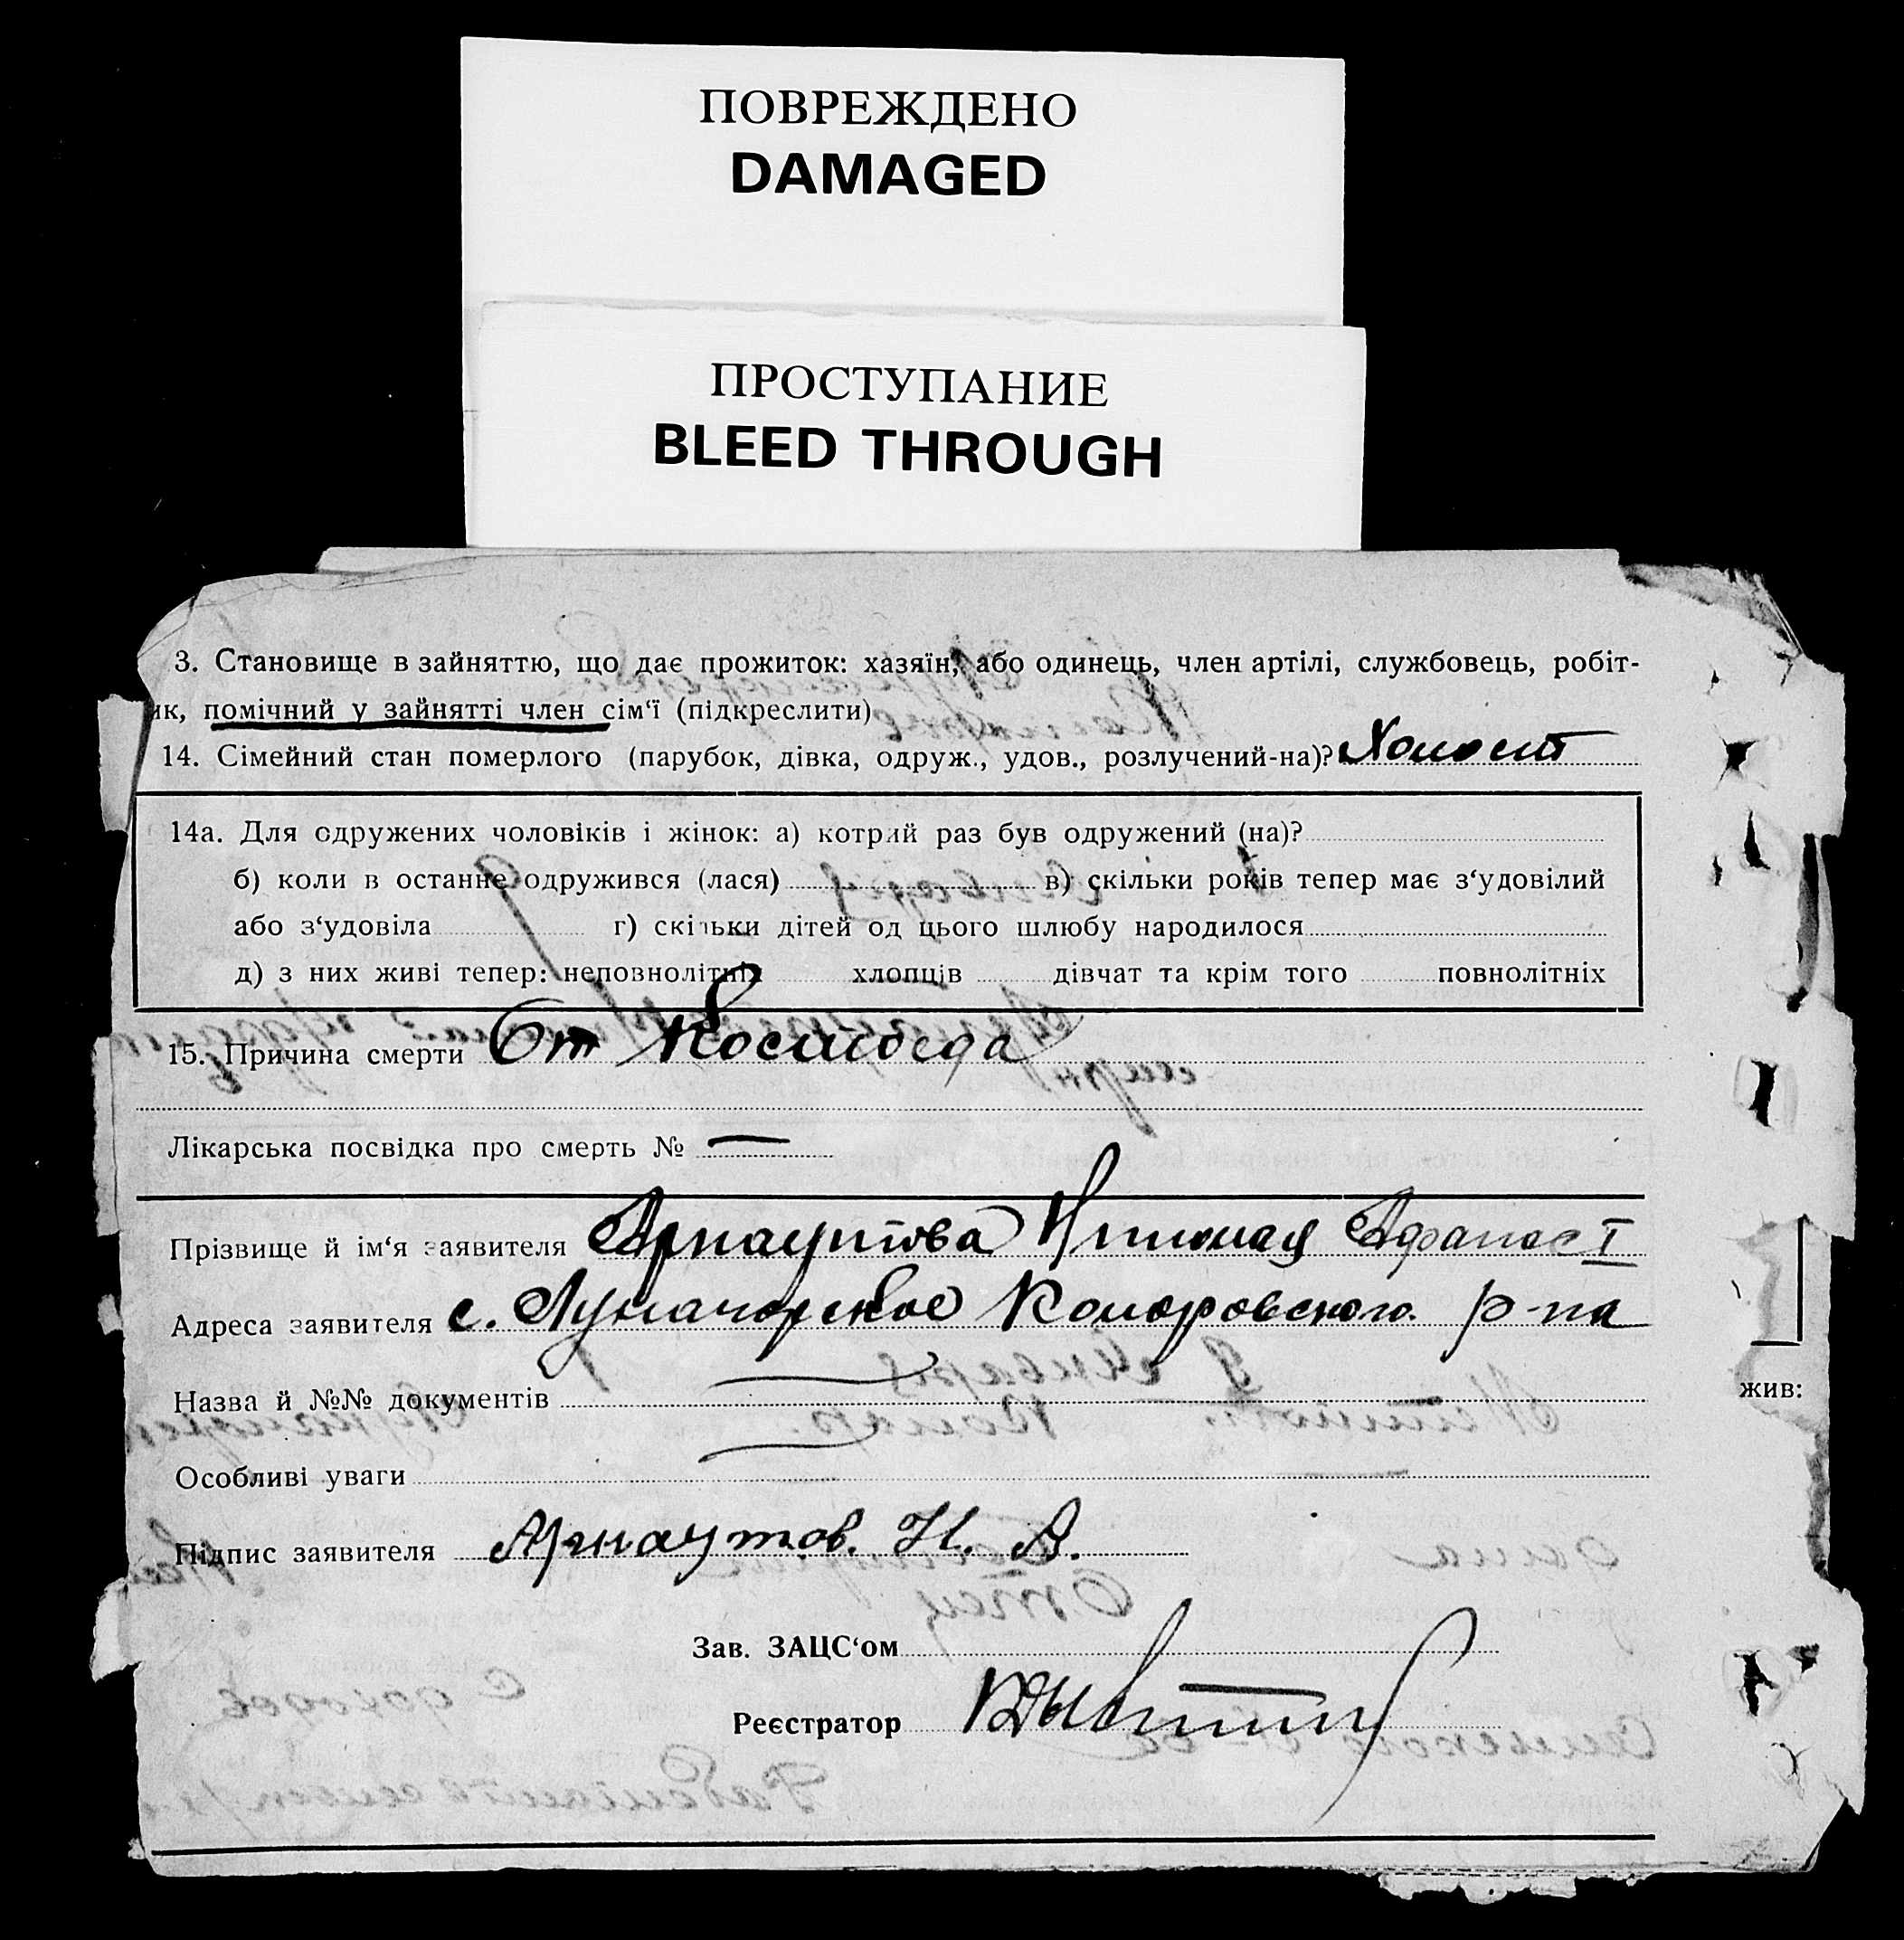 ПОВРЕЖДЕНО
DAMAGED
ПРОСТУПАНИЕ
BLEED THROUGH
3. Становище в зайняттю, що дає прожиток: хазяїн, або одинець, член артілі, службовець, робіт-
ик, помічний у зайнятті член сім‘ї (підкреслити)
14. Сімейний стан померлого (парубок, дівка, одруж., удов., розлучений-на)? Холост
14а. Для одружених чоловіків і жінок: а) котрий раз був одружений (на)?
б) коли в останнє одружився (лася) в) скільки років тепер має з‘удовілий
або з‘удовіла г) скільки дітей од цього шлюбу народилося
д) з них живі тепер: неповнолітніх хлопців дівчат та крім того повнолітніх
15. Причина смерти От
Лікарська посвідка про смерть № —
Прізвище й ім‘я заявителя Арнаутова Николая Афанас
Адреса заявителя с. Луначарское Комаровского р-на
Назва й №№ документів —
жив:
Особливі уваги —
Підпис заявителя Арнаутов. Н. А.
Зав. ЗАЦС‘ом
Реєстратор